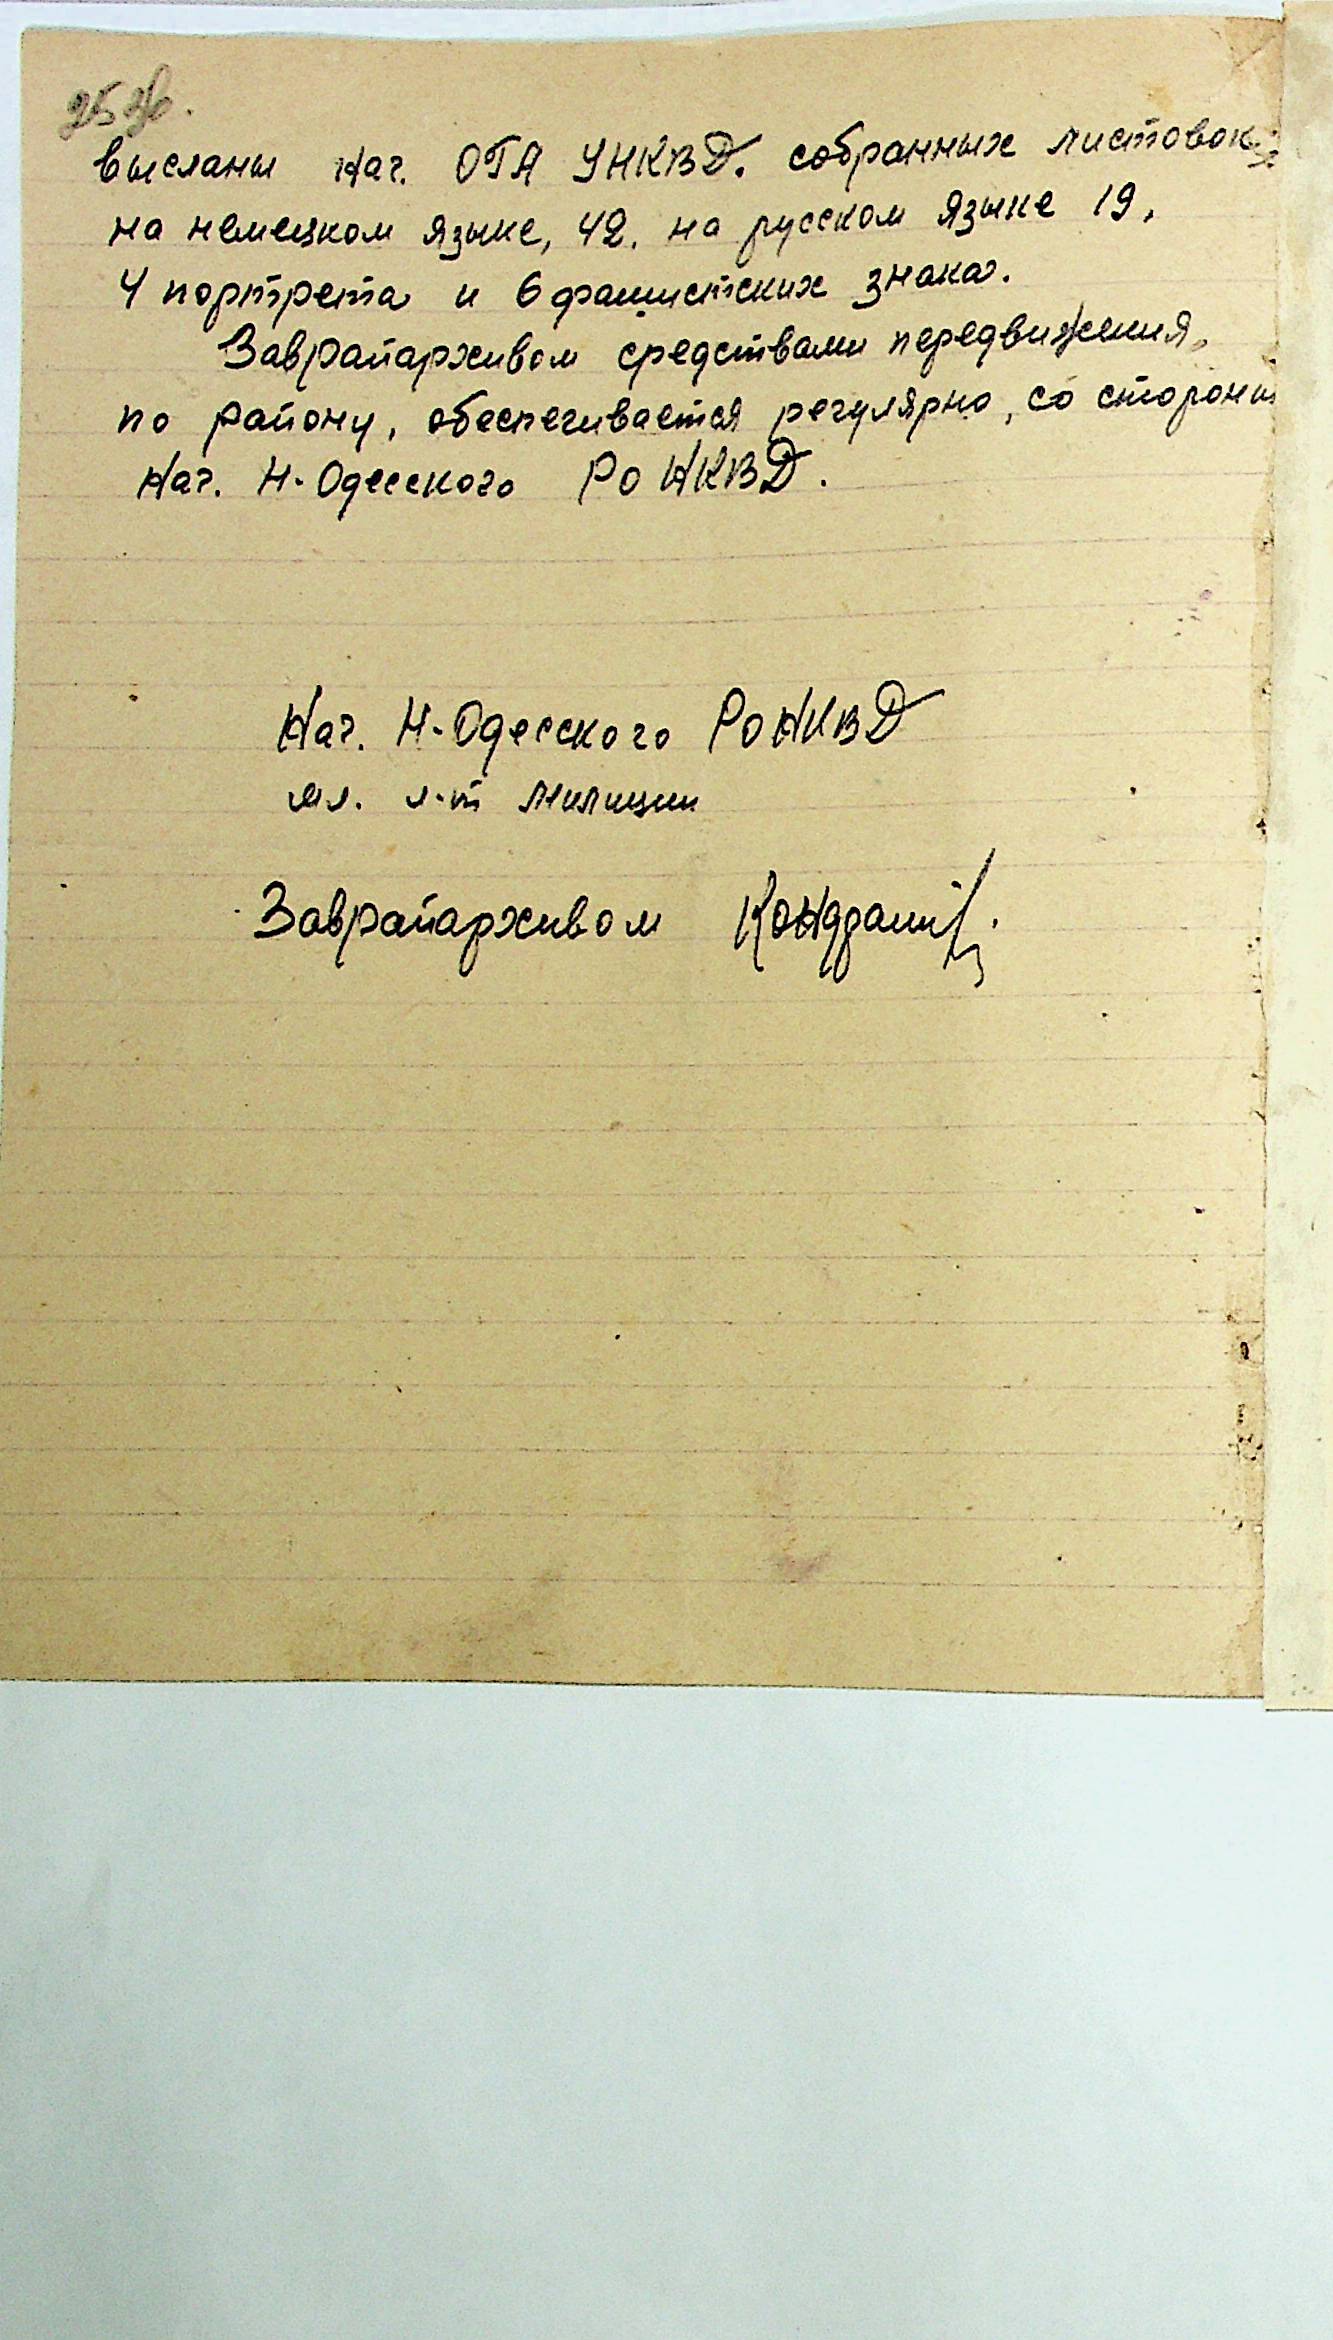 25 зв.
высланы нач. ОГА УНКВД. собранных листовок
на немецком языке, 42. на русском языке 19,
4 портрета и 6 фашистских знака.
Заврайархивом средствами передвижения,
по району, обеспечивается регулярно, со стороны
Нач. Н-Одесского РО НКВД.
Нач. Н-Одесского РО НКВД
мл. л-т милиции
Заврайархивом